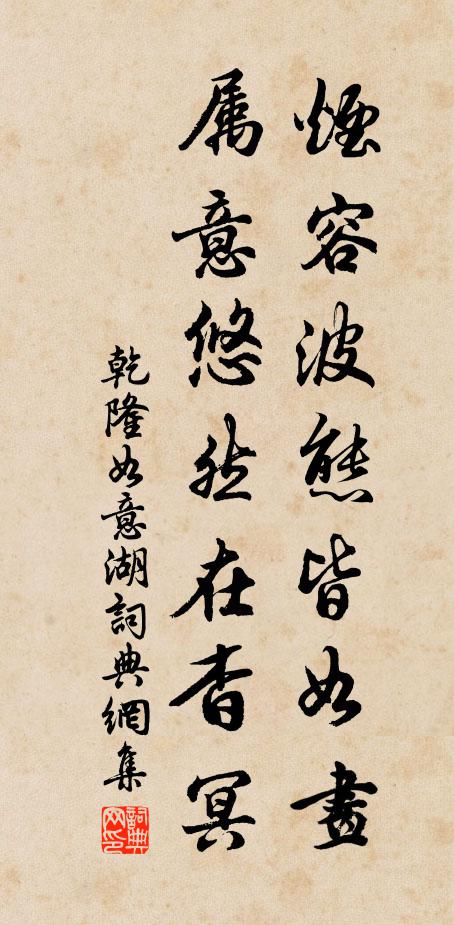 煙容波態皆如畫
属意悠然在杳冥
乾隆如意湖詞典網集
詞典网印